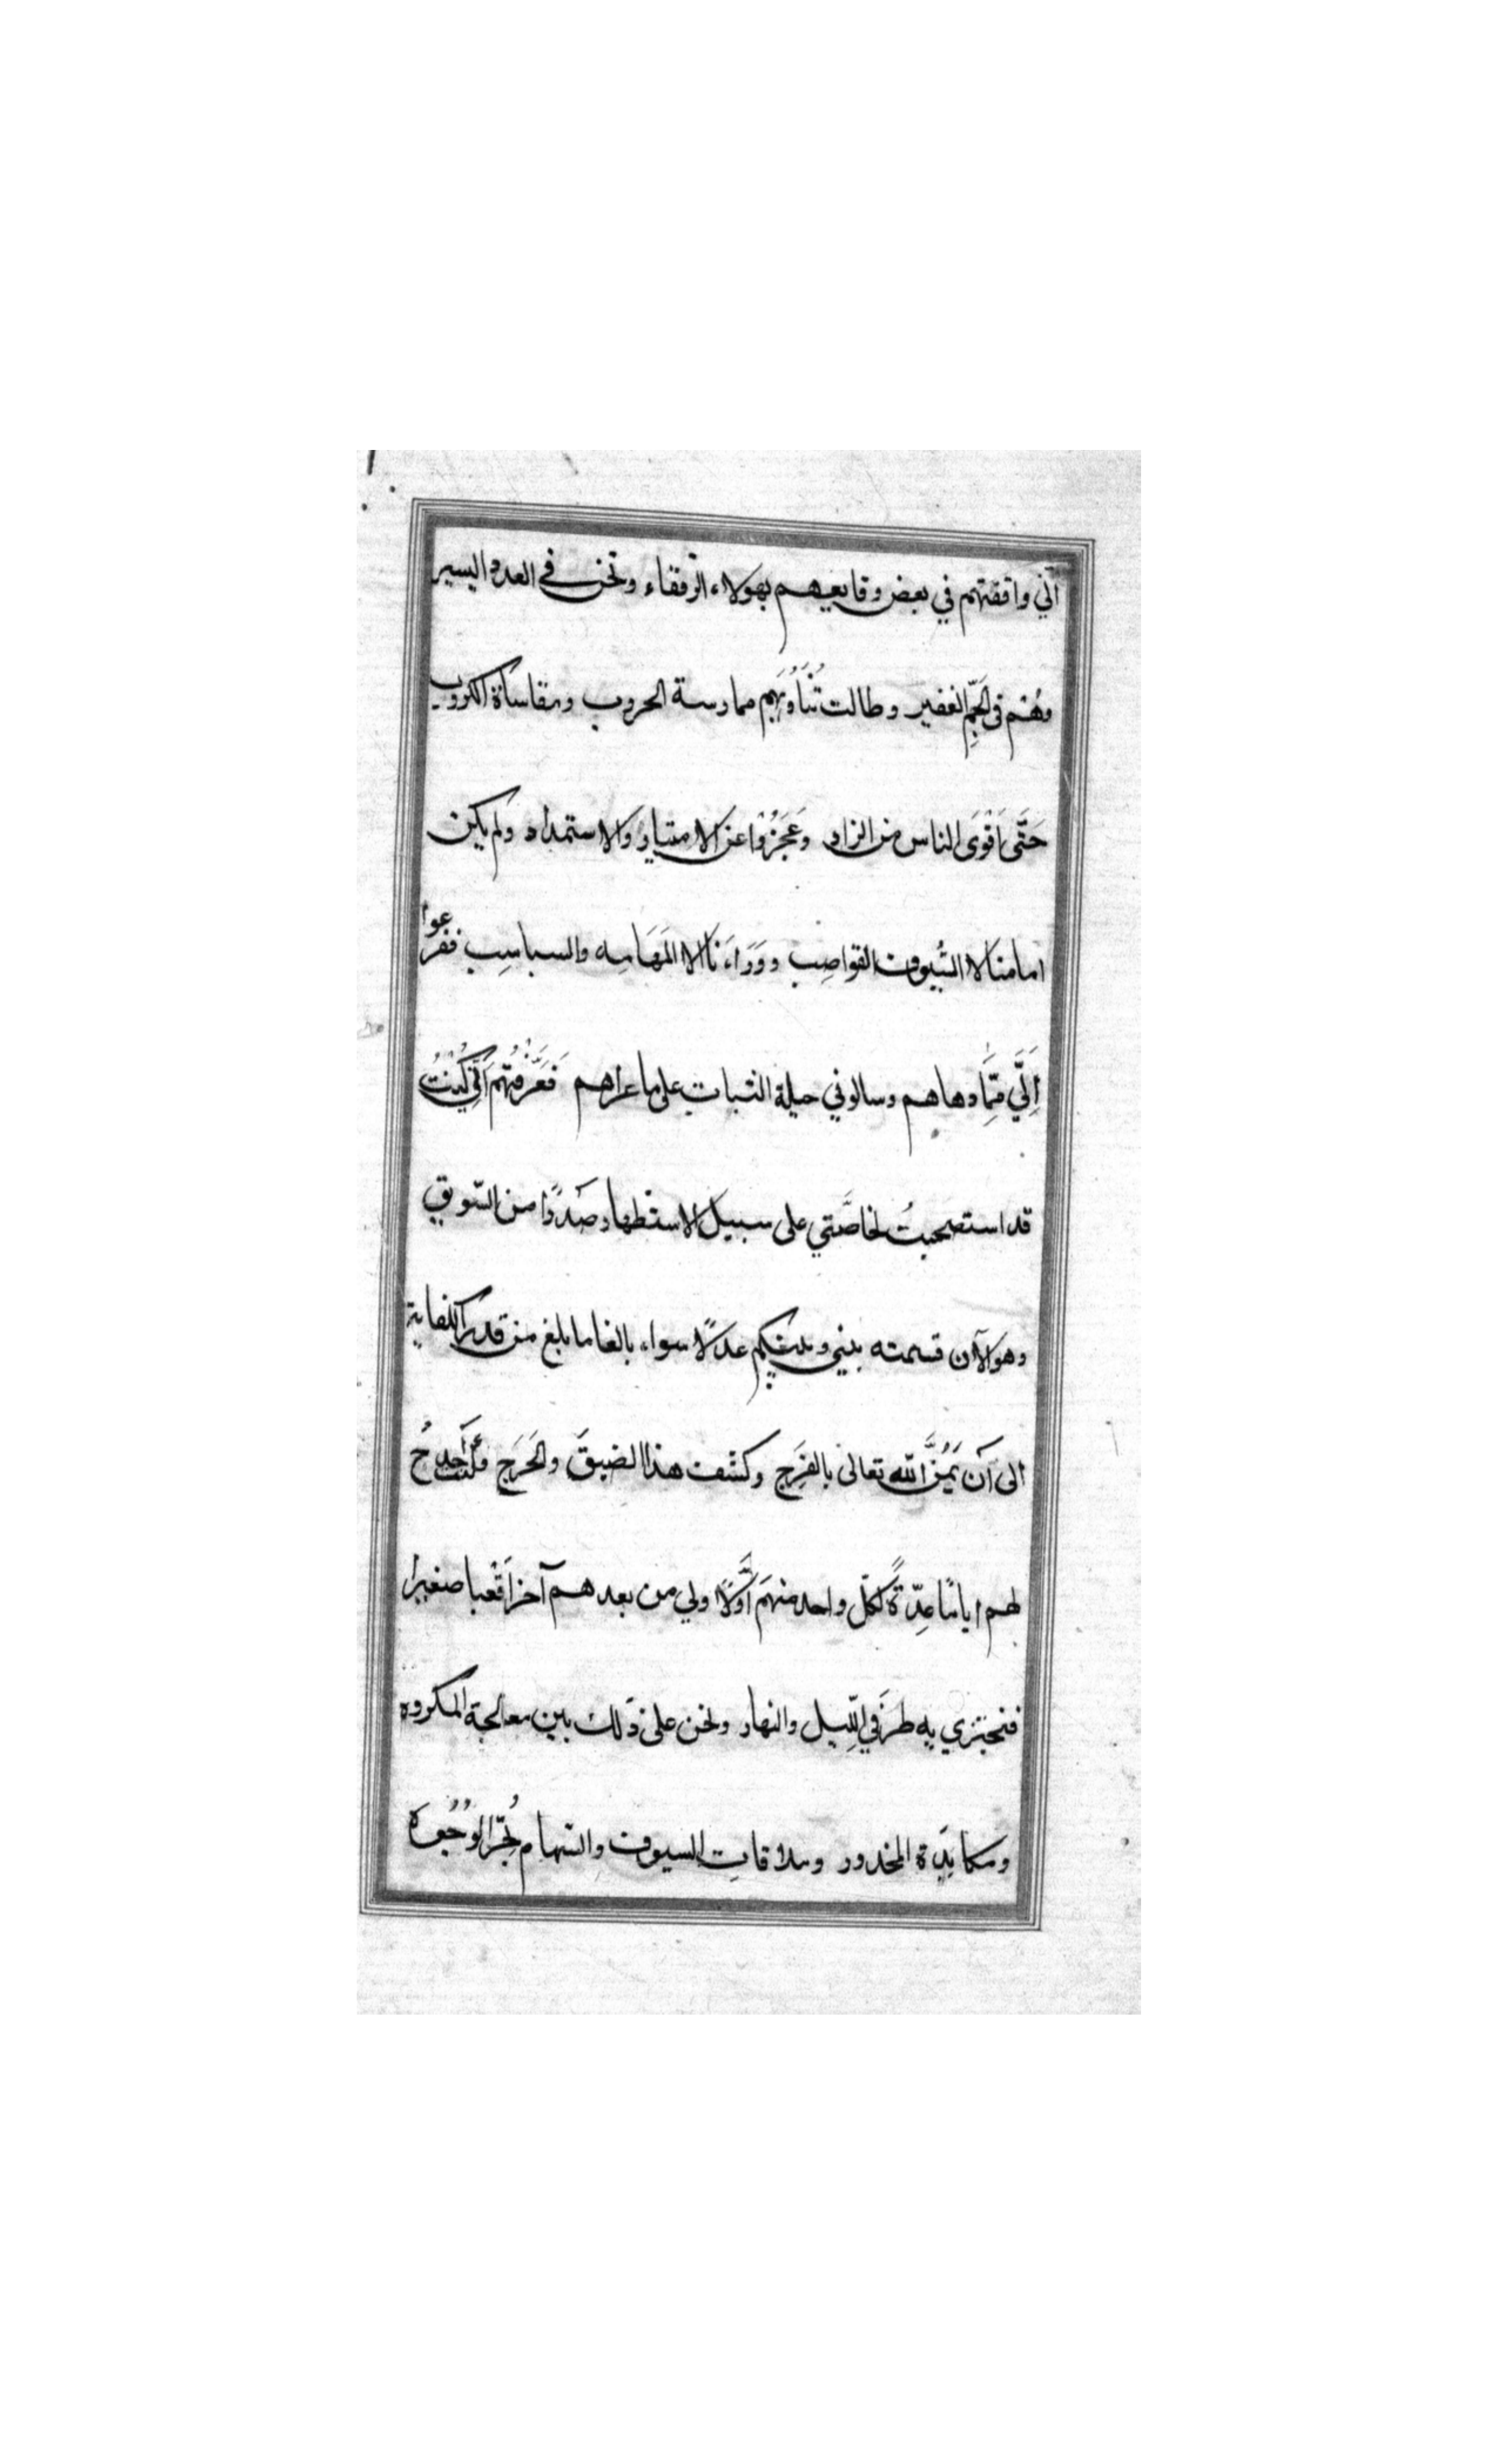 اني واقفتهم في بعض وقايعهم بهولاء الرفقاء ونحن في العدد اليسير
وهُم في الجَمِّ الغفير وطالت تُنَاوُبَهم ممارسة الحروب ومقاساة الكروب
حَتَّى اَقْوَى الناس من الزاد وَعَجَزُوْا عن الامتيار والاستمداد ولم يكن
امامنا الا السُّيوف القواضِب ووَرَاءَنا الا المَهَامِه والسباسِب ففزعوا
اِلَيَّ مِمَّا دهاهم وسالوني حيلة الثبات على ما عراهم فَعَرَّفْتُهم اَنِّي كُنْتُ
قد استصحبتُ لخاصَّتي على سبيل الاستظهار صَدْرًا من السّويق
وهو الآن قسمته بيني وبينكم عدلًا سواء بالغا ما بلغ من قدر الكفاية
الى اَن يَمُنَّ الله تعالى بالفرَج وكشف هذا الضيقَ والحَرَج وكنت أَجدحُ
لهم اياما عِدّةً لكلّ واحد منهم أَوَّلًا ولي من بعدهم آخراً قَعْبا صغيرا
فنجتزي به طرَفي اللّيل والنهار ونحن على ذلك بين معالجة المكروه
ومكابَدة المحذور وملاقات السيوف والسّهام بُحرّ الوُجُوه